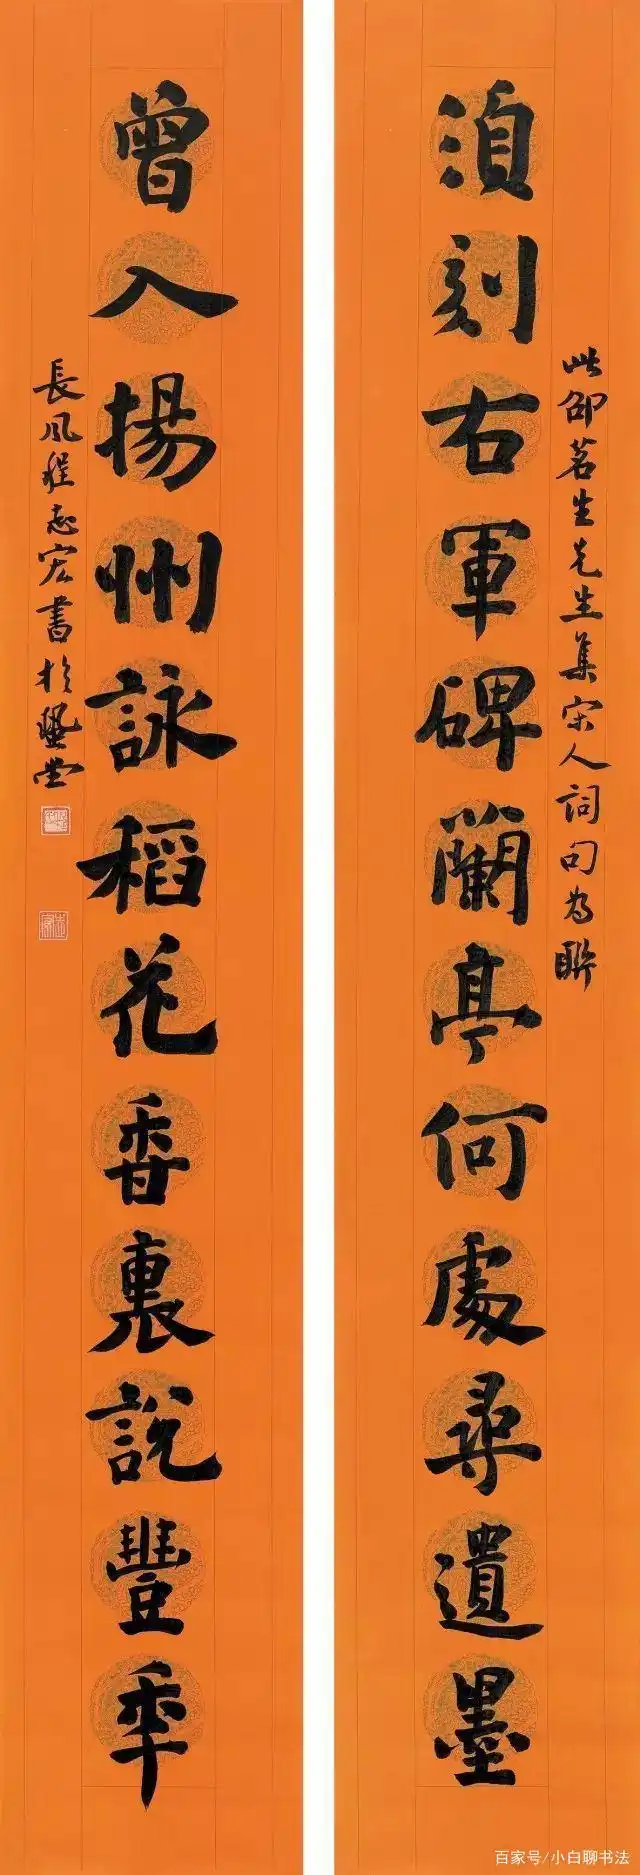 須刻右軍碑蘭亭何處尋遺墨
此邵茗生先生集宋人詞句為聯
曾入揚州詠稻花香裏說豐年
長風程志宏書於
堂
百家号/小白聊书法